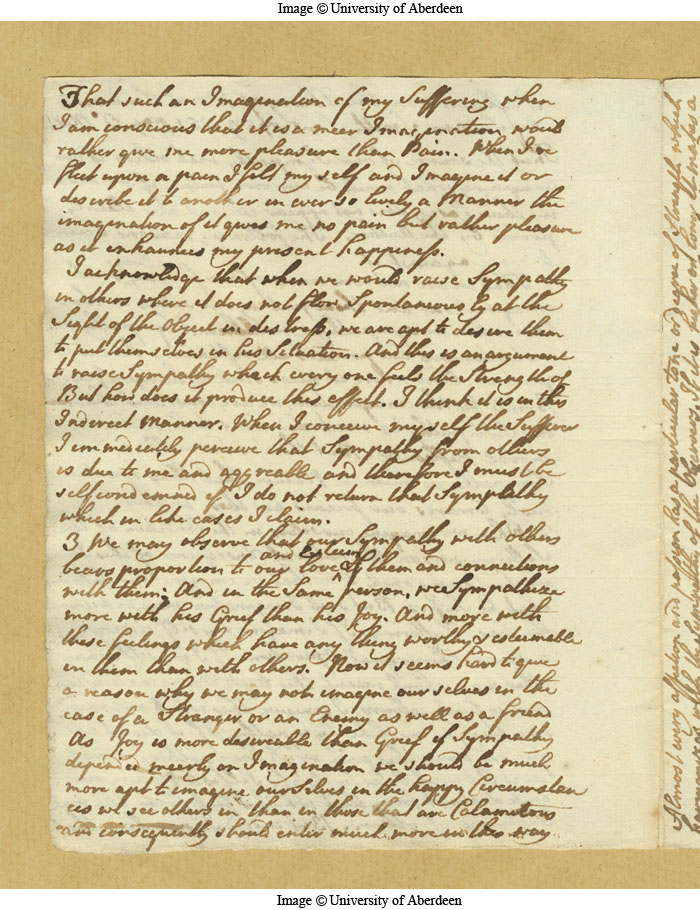 Image © University of Aberdeen
That such an Imagination of my Suffering when
I am conscious that it is a meer Imagination would
rather give me more pleasure than Pain. When I re
flect upon a pain I felt my self and Imagine it or
describe it to another in ever so lively a Manner the
imagination of it gives me no pain but rather pleasure
as it enhaunces my present happiness.
I acknowledge that when we would raise Sympathy
in others where it does not flow Spontaneously at the
Sight of the Object in distress, we are apt to desire them
to put themselves in his Situation. And this is an argument
to raise Sympathy which every one feels the Strength of
But how does it produce this effect. I think it is in this
Indirect Manner. When I conceive my self the Sufferer
I immediately perceive that Sympathy from others
is due to me and agreable and therefore I must be
selfcondemned if I do not return that Sympathy
which in like cases I claim.
3 We may observe that our Sympathy with others
and Esteem
bears proportion to our love ^ of them and connections
with them; And in the Same person, we Sympathize
more with his Grief than his Joy. And more with
these feelings which have any thing worthy & esteemable
in them than with others. Now it seems hard to give
a reason why we may not imagine our selves in the
case of a Stranger or an Enemy as well as a friend
As Joy is more desireable than Grief if Sympathy
depended meerly on Imagination we should be much
more apt to imagine ourselves in the happy Circumstan
ces we see others in than in those that are Calamitous
and consequently should enter much more in this way
Almost every affection and passion has a particular tone or degree of Strength which
Image © University of Aberdeen